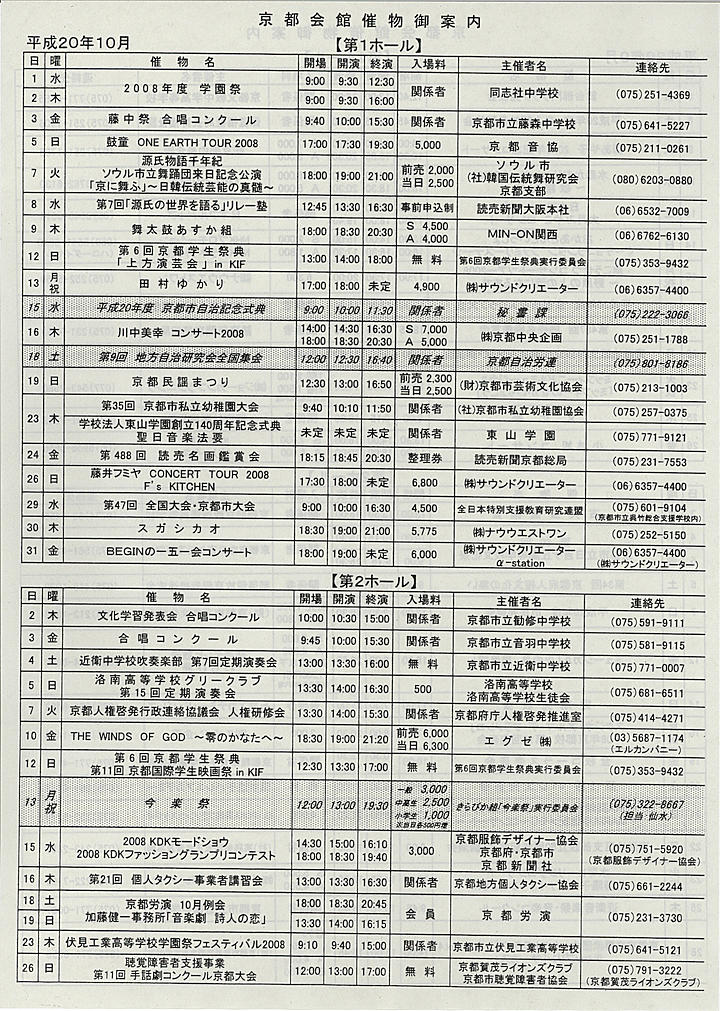 京都会館催物御案内
平成20年10月 【第1ホール】
日 曜 催物名 開場 開演 終演 入場料 主催者名 連絡先
1 水 2008年度 学園祭 9:00 9:30 12:30 関係者 同志社中学校 (075)251-4369
2 木 9:00 9:30 16:00
3 金 藤中祭 合唱コンクール 9:40 10:00 15:30 関係者 京都市立藤森中学校 (075)641-5227
5 日 鼓童 ONE EARTH TOUR 2008 17:00 17:30 19:30 5,000 京都音協 (075)211-0261
7 火 源氏物語千年紀
ソウル市立舞踊団来日記念公演
「京に舞ふ」～日韓伝統芸能の真髄～ 18:00 19:00 21:00 前売 2,000 当日 2,500 ソウル市 (社)韓国伝統舞研究会 京都支部 (080)6203-0880
8 水 第7回「源氏の世界を語る」リレー塾 12:45 13:30 16:30 事前申込制 読売新聞大阪本社 (06)6532-7009
9 木 舞太鼓あすか組 18:00 18:30 20:30 S 4,500 A 4,000 MIN-ON関西 (06)6762-6130
12 日 第6回京都学生祭典
「上方演芸会」in KIF 13:00 14:00 18:00 無料 第6回京都学生祭典実行委員会 (075)353-9432
13 月祝 田村ゆかり 17:00 18:00 未定 4,900 ㈱サウンドクリエーター (06)6357-4400
15 水 平成20年度 京都市自治記念式典 9:00 10:00 11:30 関係者 秘書課 (075)222-3066
16 木 川中美幸 コンサート2008 14:00 14:30 16:30 S 7,000 ㈱京都中央企画 (075)251-1788
18:00 18:30 20:30 A 5,000
18 土 第9回 地方自治研究会全国集会 12:00 12:30 16:40 関係者 京都自治労連 (075)801-8186
19 日 京都民謡まつり 12:30 13:00 16:50 前売 2,300 当日 2,500 (財)京都市芸術文化協会 (075)213-1003
23 木 第35回 京都市私立幼稚園大会 9:40 10:10 11:50 関係者 (社)京都市私立幼稚園協会 (075)257-0375
学校法人東山学園創立140周年記念式典
聖日音楽法要 未定 未定 未定 関係者 東山学園 (075)771-9121
24 金 第488回 読売名画鑑賞会 18:15 18:45 20:30 整理券 読売新聞京都総局 (075)231-7553
26 日 藤井フミヤ CONCERT TOUR 2008
F's KITCHEN 17:30 18:00 未定 6,800 ㈱サウンドクリエーター (06)6357-4400
29 水 第47回 全国大会・京都市大会 9:00 10:00 16:30 4,500 全日本特別支援教育研究連盟 (075)601-9104
(京都市立呉竹総合支援学校内)
30 木 スガシカオ 18:30 19:00 21:00 5,775 ㈱ナウウエストワン (075)252-5150
31 金 BEGINの一五一会コンサート 18:00 19:00 未定 6,000 ㈱サウンドクリエーター α-station (06)6357-4400
(㈱サウンドクリエーター)
【第2ホール】
日 曜 催物名 開場 開演 終演 入場料 主催者名 連絡先
2 木 文化学習発表会 合唱コンクール 10:00 10:30 15:00 関係者 京都市立勧修中学校 (075)591-9111
3 金 合唱コンクール 9:45 10:00 15:30 関係者 京都市立音羽中学校 (075)581-9115
4 土 近衛中学校吹奏楽部 第7回定期演奏会 13:00 13:30 16:00 無料 京都市立近衛中学校 (075)771-0007
5 日 洛南高等学校グリークラブ
第15回定期演奏会 13:30 14:00 16:30 500 洛南高等学校 洛南高等学校生徒会 (075)681-6511
7 火 京都人権啓発行政連絡協議会 人権研修会 13:30 14:00 15:30 関係者 京都府庁人権啓発推進室 (075)414-4271
10 金 THE WINDS OF GOD ～零のかなたへ～ 18:30 19:00 21:20 前売 6,000 当日 6,300 エグゼ㈱ (03)5687-1174
(エルカンパニー)
12 日 第6回京都学生祭典
第11回 京都国際学生映画祭 in KIF 12:30 13:30 17:00 無料 第6回京都学生祭典実行委員会 (075)353-9432
13 月祝 今楽祭 12:00 13:00 19:30 一般 3,000 中高生 2,500 小学生 1,000 ※当日各500円増 きらびか組「今楽祭」実行委員会 (075)322-8667
(担当:仙水)
15 水 2008 KDKモードショウ 14:30 15:00 16:10 3,000 京都服飾デザイナー協会 京都府・京都市 京都新聞社 (075)751-5920
2008 KDKファッショングランプリコンテスト 18:00 18:30 19:40 (京都服飾デザイナー協会)
16 木 第21回 個人タクシー事業者講習会 13:00 13:30 16:30 関係者 京都地方個人タクシー協会 (075)661-2244
18 土 京都労演 10月例会 18:00 18:30 20:45 会員 京都労演 (075)231-3730
19 日 加藤健一事務所「音楽劇 詩人の恋」 13:30 14:00 16:15
23 木 伏見工業高等学校学園祭フェスティバル2008 9:10 9:40 15:00 関係者 京都市立伏見工業高等学校 (075)641-5121
26 日 聴覚障害者支援事業
第11回 手話劇コンクール京都大会 12:00 13:00 17:00 無料 京都賀茂ライオンズクラブ 京都市聴覚障害者協会 (075)791-3222
(京都賀茂ライオンズクラブ)